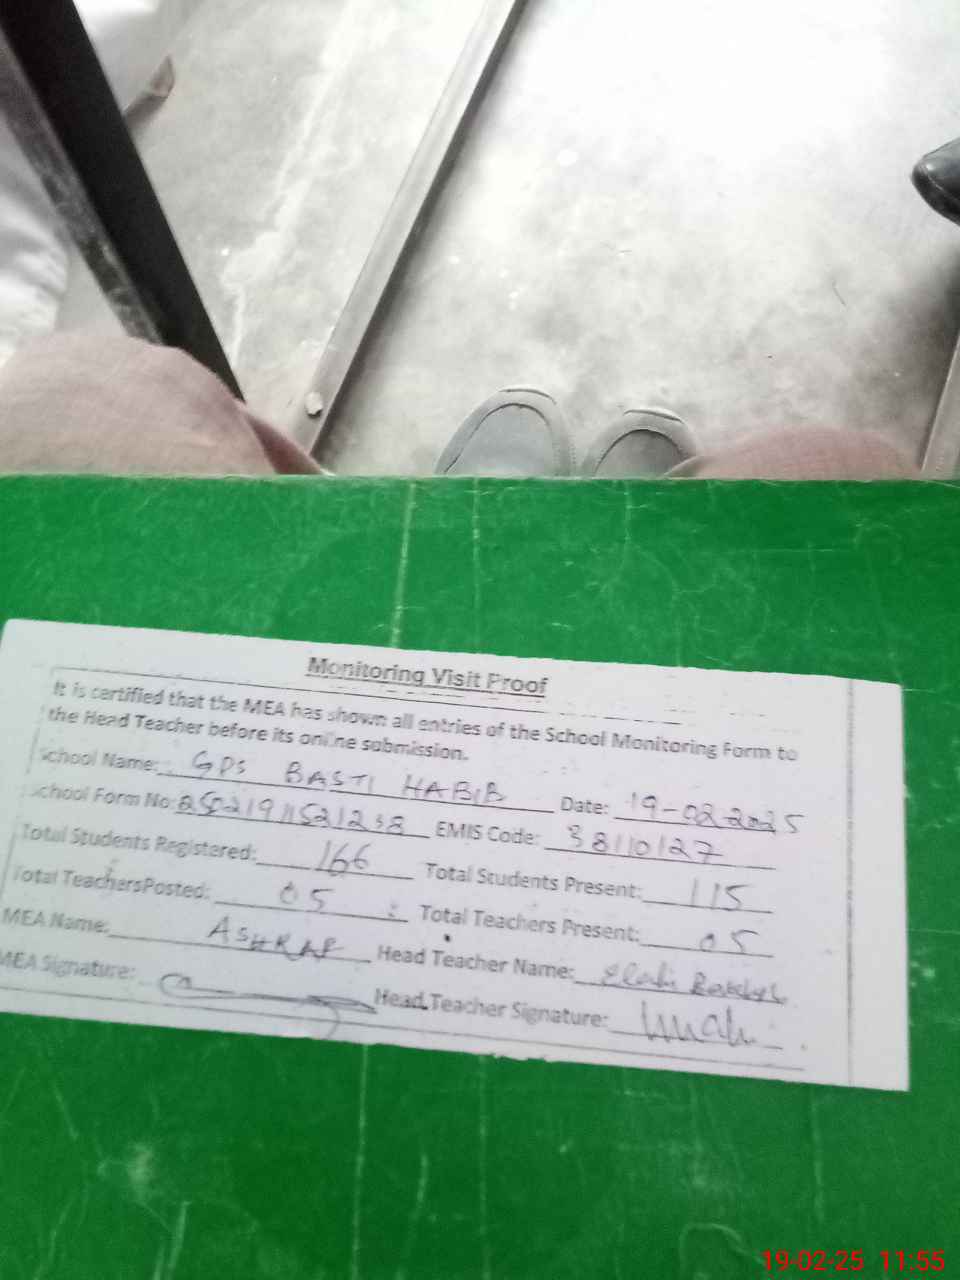 Monitoring Visit Proof
It is certified that the MEA has shown all entries of the School Monitoring Form to
the Head Teacher before its online submission.
School Name: GPS BASTI HABIB Date: 19-02-2025
School Form No: 25021911521238 EMIS Code: 38110127
Total Students Registered: 166 Total Students Present: 115
Total TeachersPosted: 05 Total Teachers Present: 05
MEA Name: ASHRAF Head Teacher Name: Elahi Bakhsh
MEA Signature: Head Teacher Signature:
19-02-25 11:55